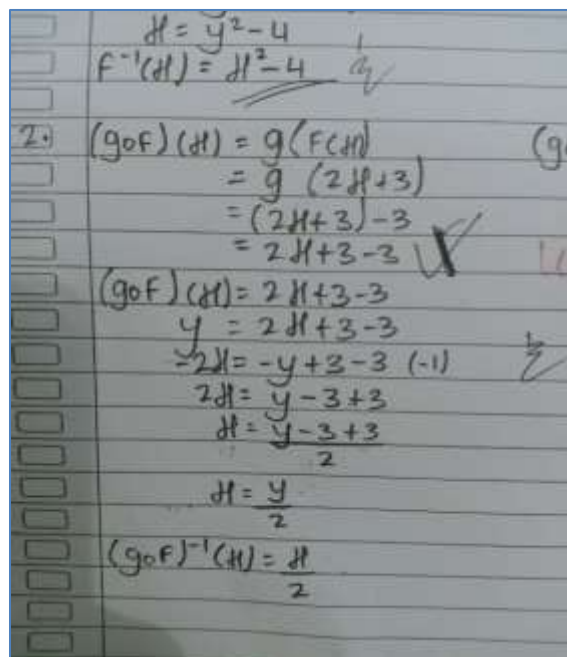 x = y² - 4
f⁻¹(x) = x² - 4
2. (gof)(x) = g(f(x)
= g (2x+3)
= (2x+3) - 3
= 2x+3-3
(gof)(x) = 2x+3-3
y = 2x+3-3
-2x = -y+3-3 (-1)
2x = y-3+3
x = y-3+3 / 2
x = y / 2
(gof)⁻¹(x) = x / 2
(go